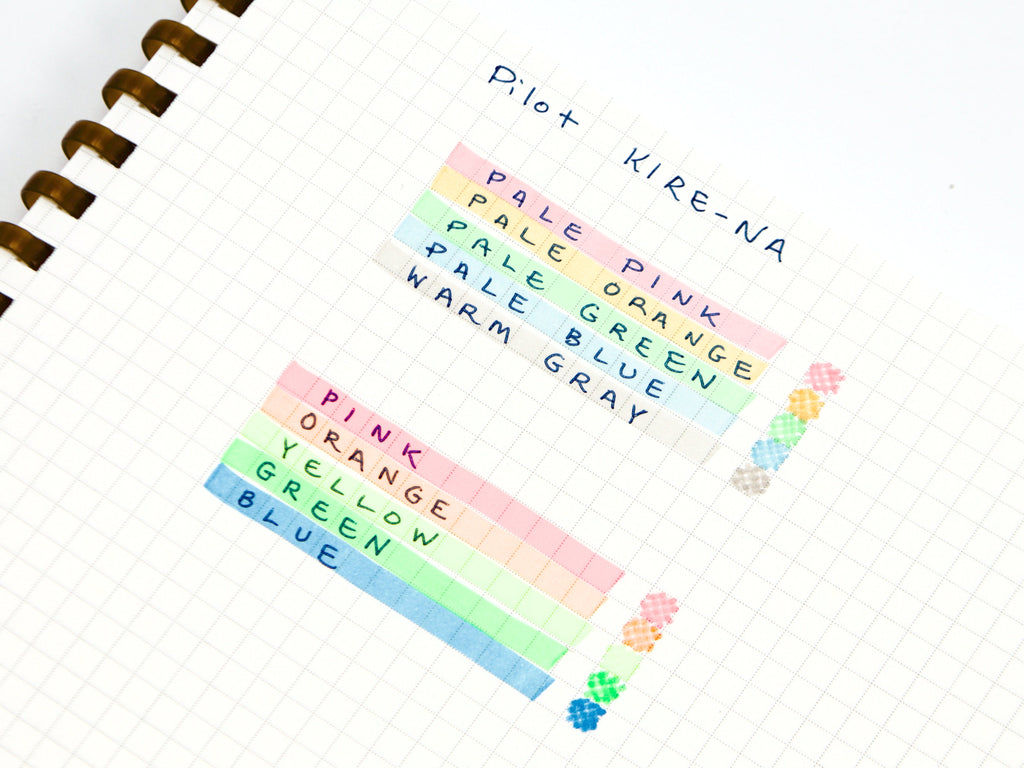 Pilot KIRE-NA
PALE PINK
PALE ORANGE
PALE GREEN
PALE BLUE
WARM GRAY
PINK
ORANGE
YELLOW
GREEN
BLUE